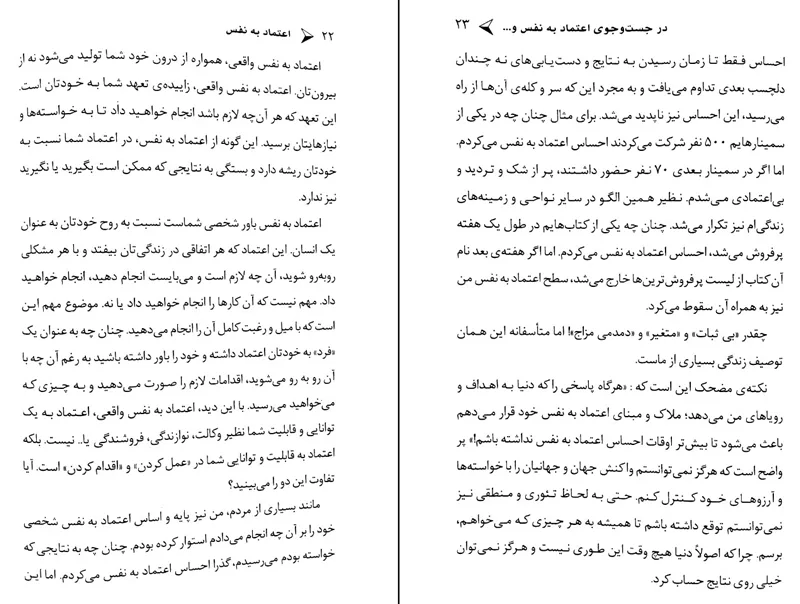 ۲۲ اعتماد به نفس
اعتماد به نفس واقعی، همواره از درون خود شما تولید می‌شود نه از
بیرون‌تان. اعتماد به نفس واقعی، زاییده‌ی تعهد شما به خودتان است.
این تعهد که هر آن‌چه لازم باشد انجام خواهید داد تا به خواسته‌ها و
نیازهایتان برسید. این گونه از اعتماد به نفس، در اعتماد شما نسبت به
خودتان ریشه دارد و بستگی به نتایجی که ممکن است بگیرید یا نگیرید
نیز ندارد.
اعتماد به نفس باور شخصی شماست نسبت به روح خودتان به عنوان
یک انسان. این اعتماد که هر اتفاقی در زندگی‌تان بیفتد و با هر مشکلی
روبه‌رو شوید، آن چه لازم است و می‌بایست انجام دهید، انجام خواهید
داد. مهم نیست که آن کارها را انجام خواهید داد یا نه. موضوع مهم این
است که با میل و رغبت کامل آن را انجام می‌دهید. چنان چه به عنوان یک
«فرد» به خودتان اعتماد داشته و خود را باور داشته باشید به رغم آن چه با
آن رو به رو می‌شوید، اقدامات لازم را صورت می‌دهید و به چیزی که
می‌خواهید می‌رسید. با این دید، اعتماد به نفس واقعی، اعتماد به یک
توانایی و قابلیت شما نظیر وکالت، نوازندگی، فروشندگی یا.. نیست. بلکه
اعتماد به قابلیت و توانایی شما در «عمل کردن» و «اقدام کردن» است. آیا
تفاوت این دو را می‌بینید؟
مانند بسیاری از مردم، من نیز پایه و اساس اعتماد به نفس شخصی
خود را بر آن چه انجام می‌دادم استوار کرده بودم. چنان چه به نتایجی که
خواسته بودم می‌رسیدم، گذرا احساس اعتماد به نفس می‌کردم. اما این
در جست‌وجوی اعتماد به نفس و... ۲۳
احساس فقط تا زمان رسیدن به نتایج و دست‌یابی‌های نه چندان
دلچسب بعدی تداوم می‌یافت و به مجرد این که سر و کله‌ی آن‌ها از راه
می‌رسید، این احساس نیز ناپدید می‌شد. برای مثال چنان چه در یکی از
سمینارهایم ۵۰۰ نفر شرکت می‌کردند احساس اعتماد به نفس می‌کردم.
اما اگر در سمینار بعدی ۷۰ نفر حضور داشتند، پر از شک و تردید و
بی‌اعتمادی می‌شدم. نظیر همین الگو در سایر نواحی و زمینه‌های
زندگی‌ام نیز تکرار می‌شد. چنان چه یکی از کتاب‌هایم در طول یک هفته
پرفروش می‌شد، احساس اعتماد به نفس می‌کردم. اما اگر هفته‌ی بعد نام
آن کتاب از لیست پرفروش‌ترین‌ها خارج می‌شد، سطح اعتماد به نفس من
نیز به همراه آن سقوط می‌کرد.
چقدر «بی ثبات» و «متغیر» و «دمدمی مزاج»! اما متأسفانه این همان
توصیف زندگی بسیاری از ماست.
نکته‌ی مضحک این است که : «هرگاه پاسخی را که دنیا به اهداف و
رویاهای من می‌دهد؛ ملاک و مبنای اعتماد به نفس خود قرار می‌دهم
باعث می‌شود تا بیش‌تر اوقات احساس اعتماد به نفس نداشته باشم!» پر
واضح است که هرگز نمی‌توانستم واکنش جهان و جهانیان را با خواسته‌ها
و آرزوهای خود کنترل کنم. حتی به لحاظ تئوری و منطقی نیز
نمی‌توانستم توقع داشته باشم تا همیشه به هر چیزی که می‌خواهم،
برسم. چرا که اصولاً دنیا هیچ وقت این طوری نیست و هرگز نمی‌توان
خیلی روی نتایج حساب کرد.